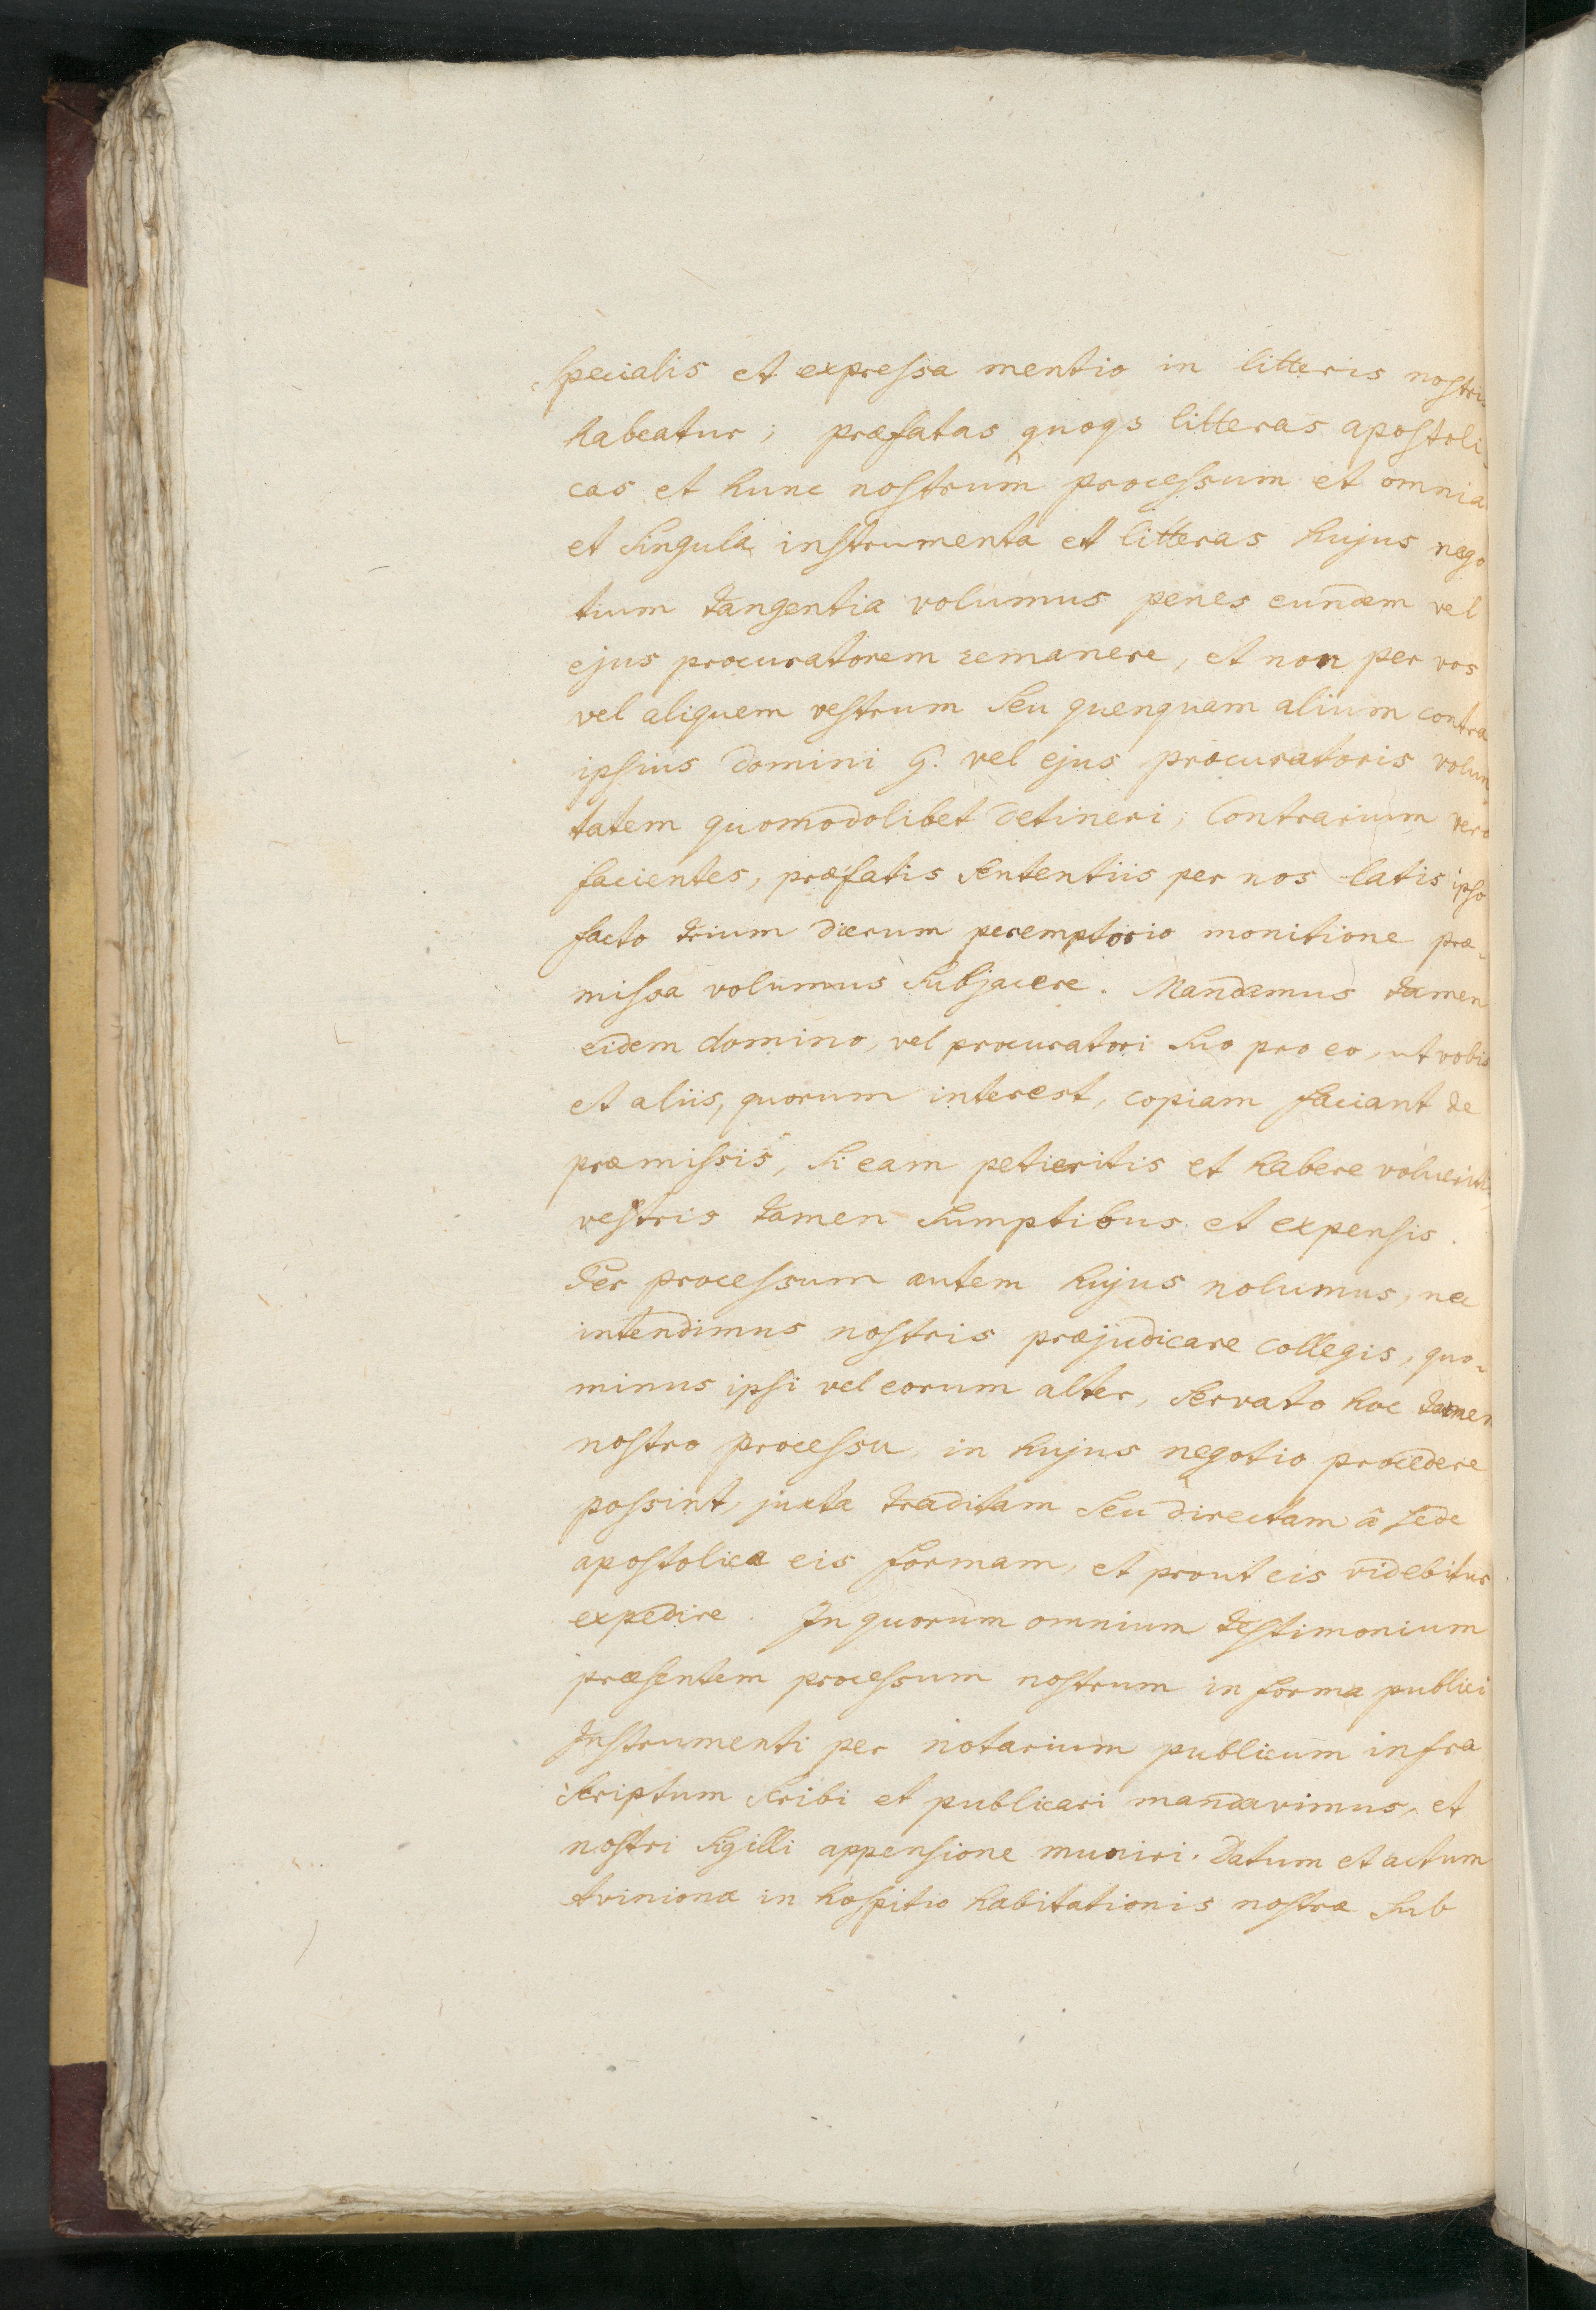 specialis et expressa mentio in litteris nostris
habeatur; præfatas quoqs litteras apostoli-
cas et hunc nostrum processum et omnia
et singula instrumenta et litteras hujus nego
tium tangentia volumus penes eundem vel
ejus procuratorem remanere, et non per vos
vel aliquem vestrum seu quenquam alium contra
ipsius domini G. vel ejus procuratoris volun
tatem quomodolibet detineri; Contrarium vero
facientes, præfatis sententiis per nos latis ipso
facto trium dierum peremptorio monitione præ-
missa volumus subjacere. Mandamus tamen
eidem domino, vel procuratori suo pro eo, ut vobis
et aliis, quorum interest, copiam faciant de
præmissis, si eam petieritis et habere volueritis,
vestris tamen sumptibus et expensis.
Per processum autem hujus nolumus, nec
intendimus nostris præjudicare collegis, quo-
minus ipsi vel eorum alter, servato hoc tamen
nostro processu, in hujus negotio procedere
possint, juxta traditam seu directam â sede
apostolica eis formam, et prout eis videbitur
expedire. In quorum omnium testimonium
præsentem processum nostrum in forma publici
Instrumenti per notarium publicum infra
scriptum scribi et publicari mandavimus, et
nostri sigilli appensione muniri. Datum et actum
Avinionæ in hospitio habitationis nostræ sub